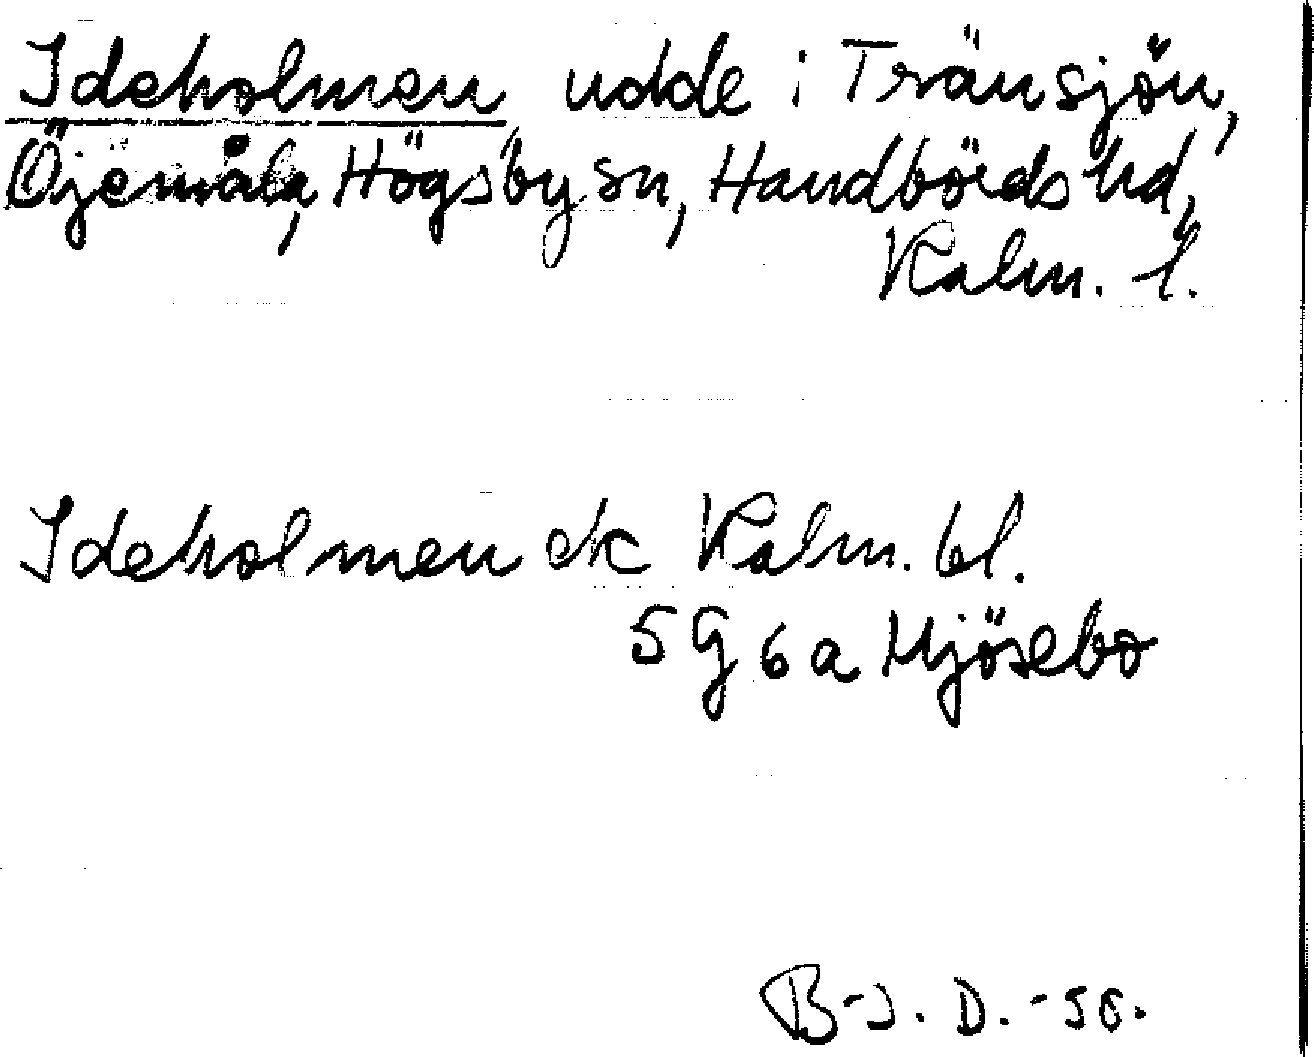 Ideholmen udde i Tränsjön,
Öjemåla, Högsby sn, Handbörds hd,
Kalm. l.
Ideholmen ek Kalm. bl.
5 G 6 a Mjösebo
B-J. D. -56.